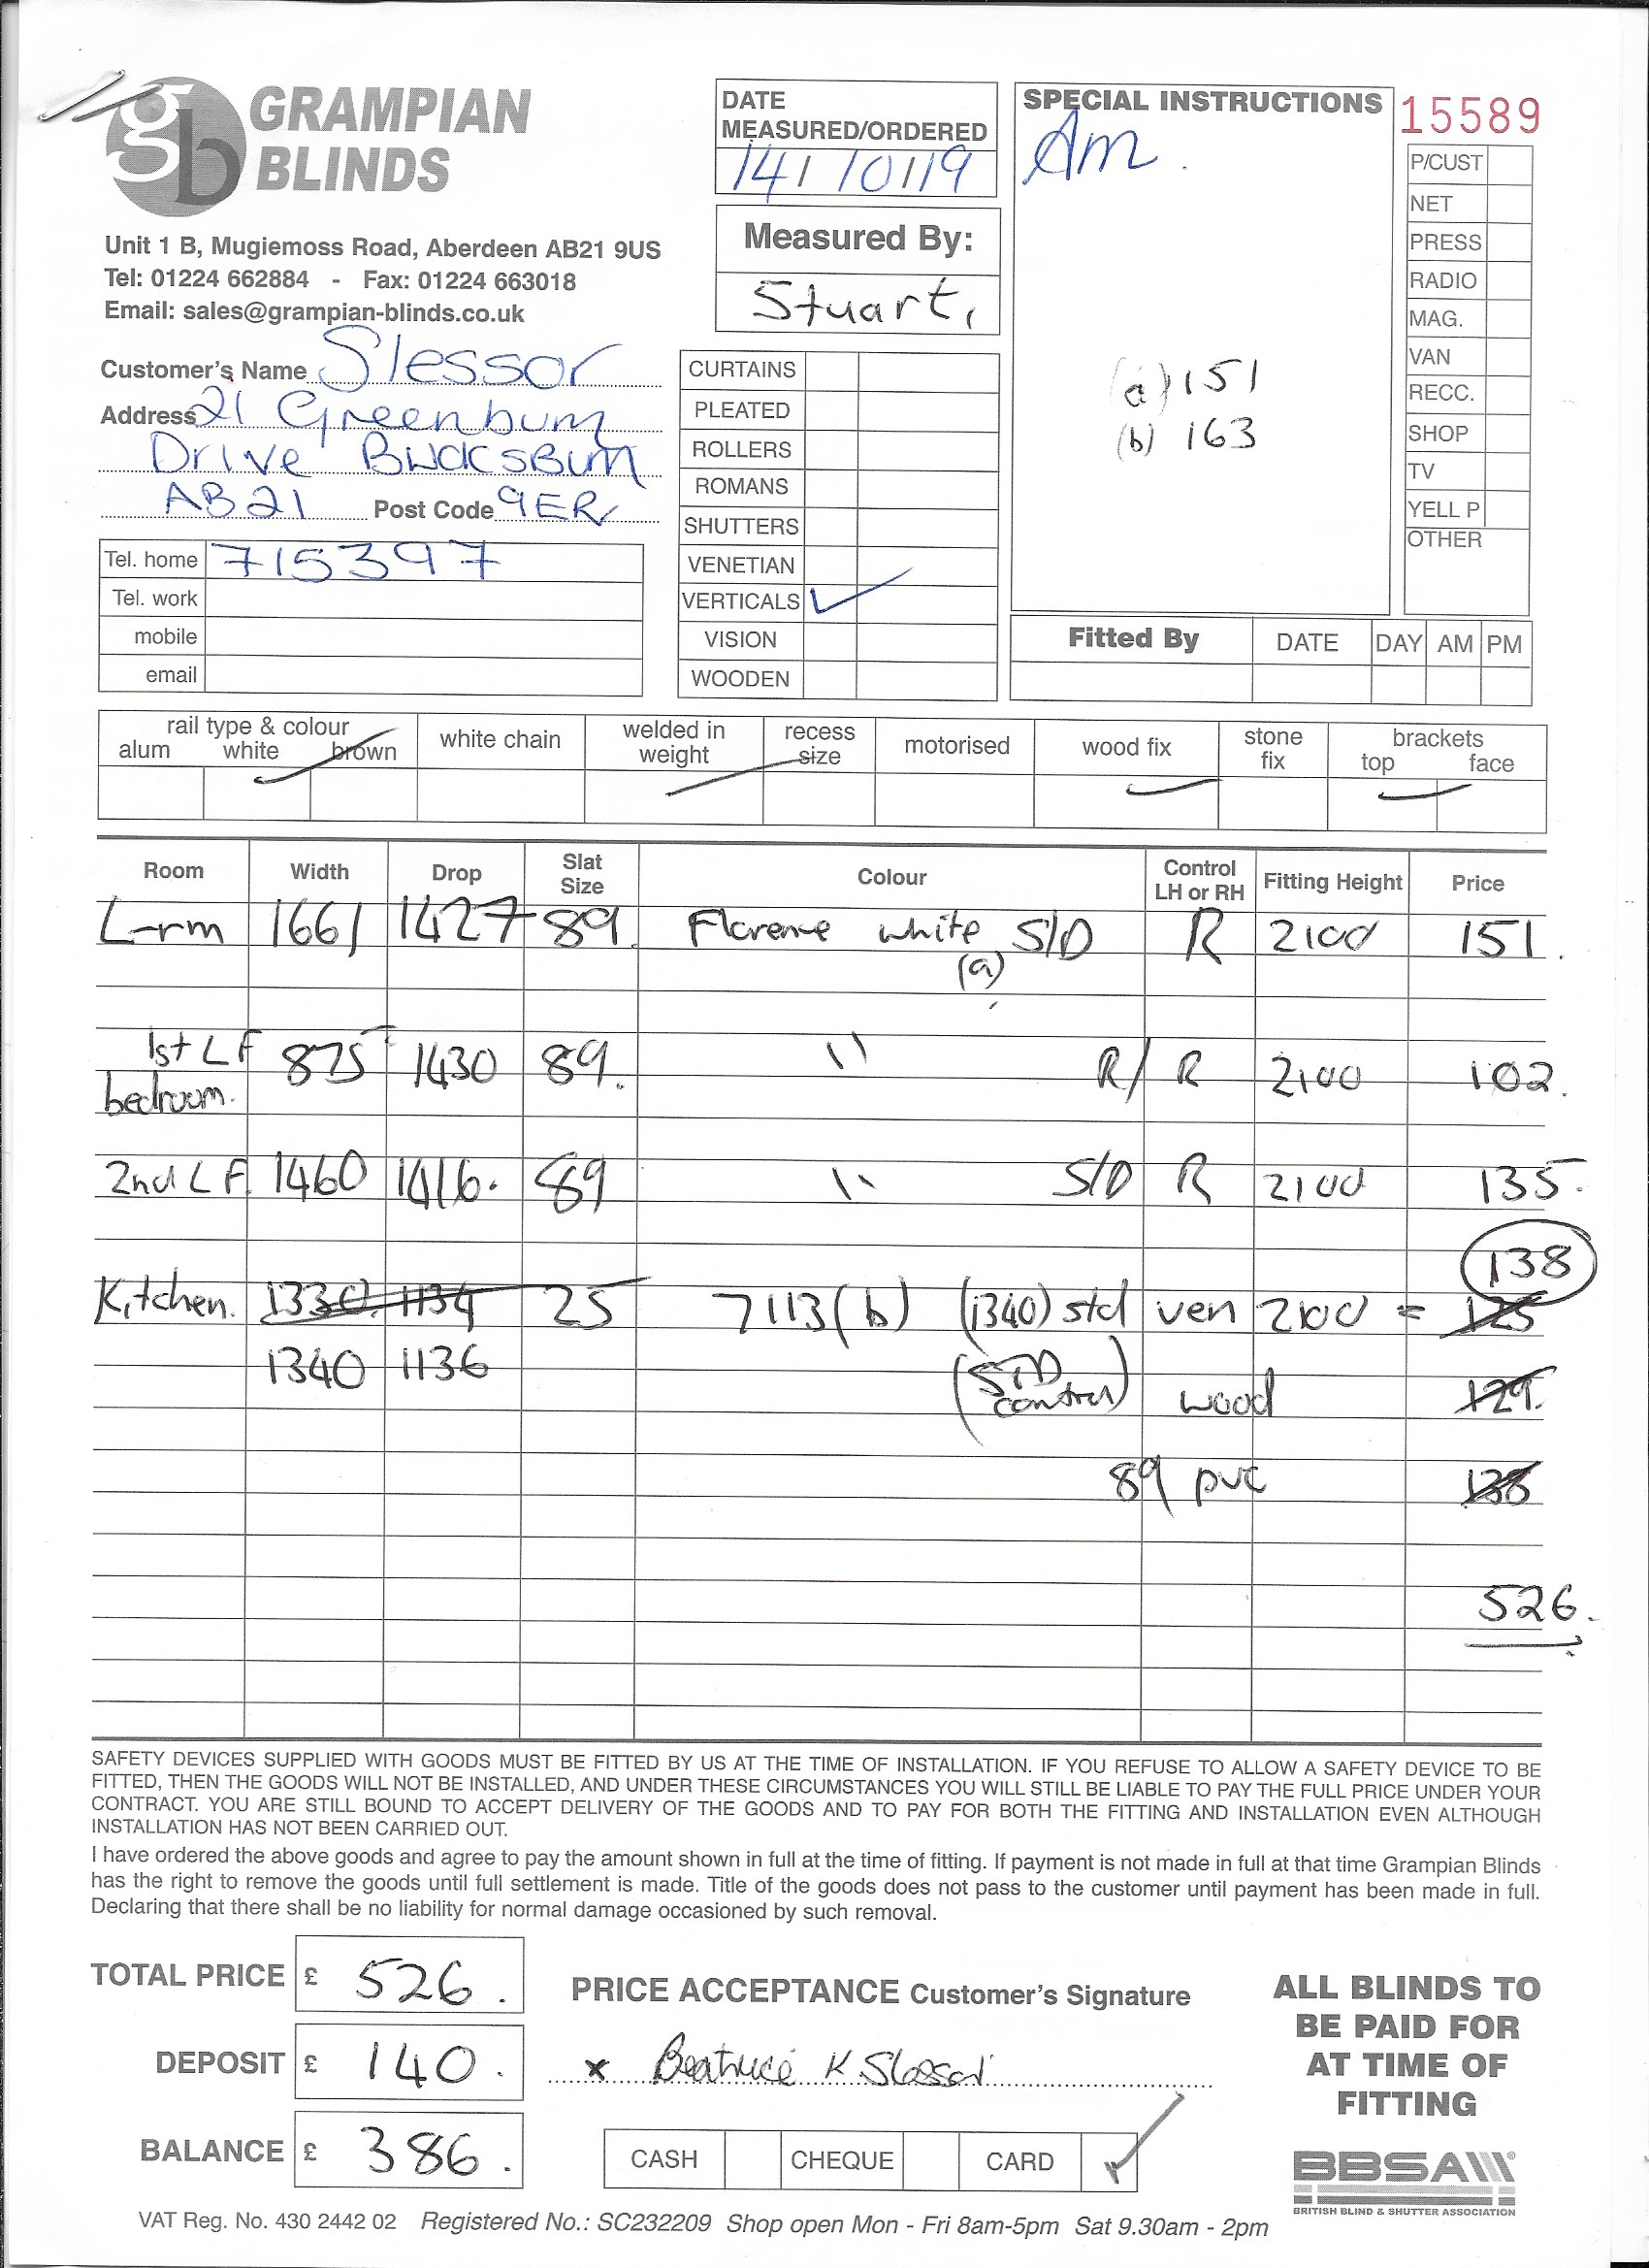 gb GRAMPIAN
BLINDS
Unit 1 B, Mugiemoss Road, Aberdeen AB21 9US
Tel: 01224 662884 - Fax: 01224 663018
Email: sales@grampian-blinds.co.uk
Customer's Name Slessor
Address 21 Greenburn
Drive Bucksburn
AB21 Post Code 9ER
Tel. home 715397
Tel. work
mobile
email
DATE
MEASURED/ORDERED
14/10/19
Measured By:
Stuart,
CURTAINS
PLEATED
ROLLERS
ROMANS
SHUTTERS
VENETIAN
VERTICALS ✓
VISION
WOODEN
SPECIAL INSTRUCTIONS
Am.
(a) 151
(b) 163
15589
P/CUST
NET
PRESS
RADIO
MAG.
VAN
RECC.
SHOP
TV
YELL P
OTHER
Fitted By DATE DAY AM PM
rail type & colour
alum white brown
white chain
welded in
weight
recess
size
motorised
wood fix
stone
fix
brackets
top face
Room Width Drop Slat Size Colour Control LH or RH Fitting Height Price
L-rm 1661 1427 89. Florence white S/D R 2100 151.
(a)
1st LF 875 1430 89. " R/ R 2100 102.
bedroom.
2nd LF. 1460 1416. 89 " S/D R 2100 135.
138
Kitchen. 1330 1134 25 7113 (b) (1340) std ven 2100 = 125
1340 1136 (STD control) wood 129.
89 pvc 138
526.
SAFETY DEVICES SUPPLIED WITH GOODS MUST BE FITTED BY US AT THE TIME OF INSTALLATION. IF YOU REFUSE TO ALLOW A SAFETY DEVICE TO BE
FITTED, THEN THE GOODS WILL NOT BE INSTALLED, AND UNDER THESE CIRCUMSTANCES YOU WILL STILL BE LIABLE TO PAY THE FULL PRICE UNDER YOUR
CONTRACT. YOU ARE STILL BOUND TO ACCEPT DELIVERY OF THE GOODS AND TO PAY FOR BOTH THE FITTING AND INSTALLATION EVEN ALTHOUGH
INSTALLATION HAS NOT BEEN CARRIED OUT.
I have ordered the above goods and agree to pay the amount shown in full at the time of fitting. If payment is not made in full at that time Grampian Blinds
has the right to remove the goods until full settlement is made. Title of the goods does not pass to the customer until payment has been made in full.
Declaring that there shall be no liability for normal damage occasioned by such removal.
TOTAL PRICE £ 526.
DEPOSIT £ 140.
BALANCE £ 386.
PRICE ACCEPTANCE Customer's Signature
x Beatrice K Slessor
CASH CHEQUE CARD ✓
ALL BLINDS TO
BE PAID FOR
AT TIME OF
FITTING
BBSA
BRITISH BLIND & SHUTTER ASSOCIATION
VAT Reg. No. 430 2442 02 Registered No.: SC232209 Shop open Mon - Fri 8am-5pm Sat 9.30am - 2pm